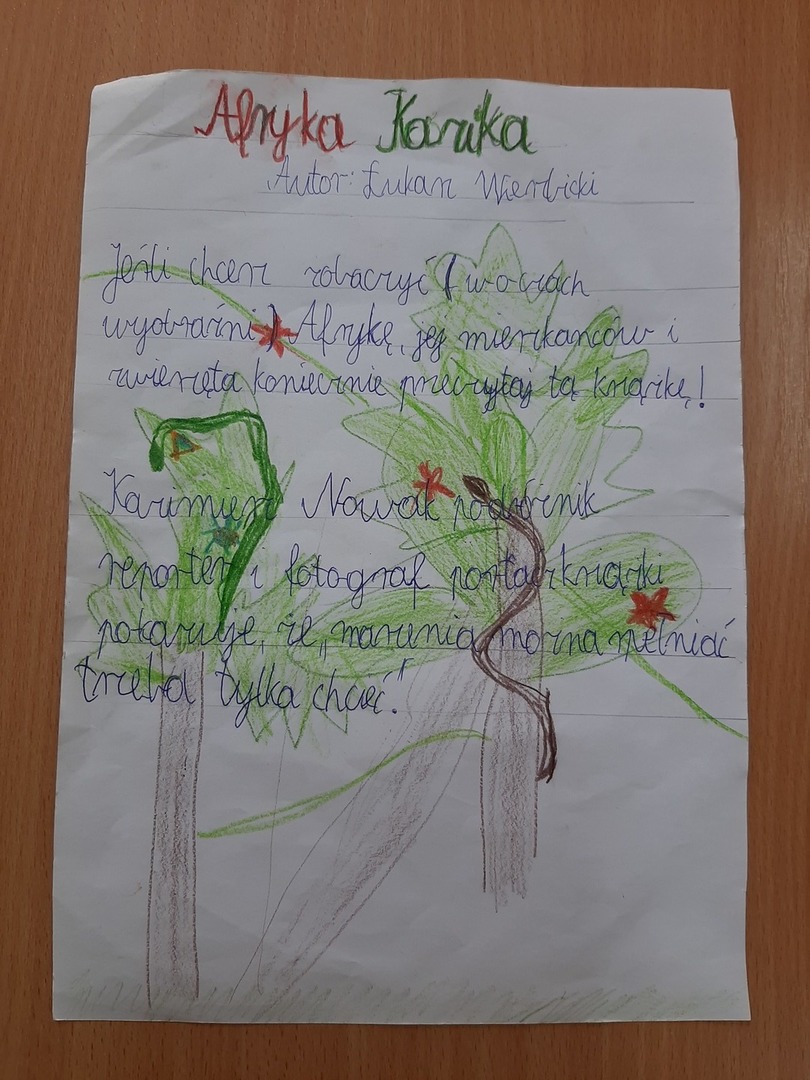 Afryka Kazika
Autor: Łukasz Wierzbicki
Jeśli chcesz zobaczyć (w oczach
wyobraźni) Afrykę, jej mieszkańców i
zwierzęta koniecznie przeczytaj tą książkę!
Kazimierz Nowak podróżnik
reporter i fotograf postać książki
pokazuje, że „marzenia można spełniać
trzeba tylko chcieć."